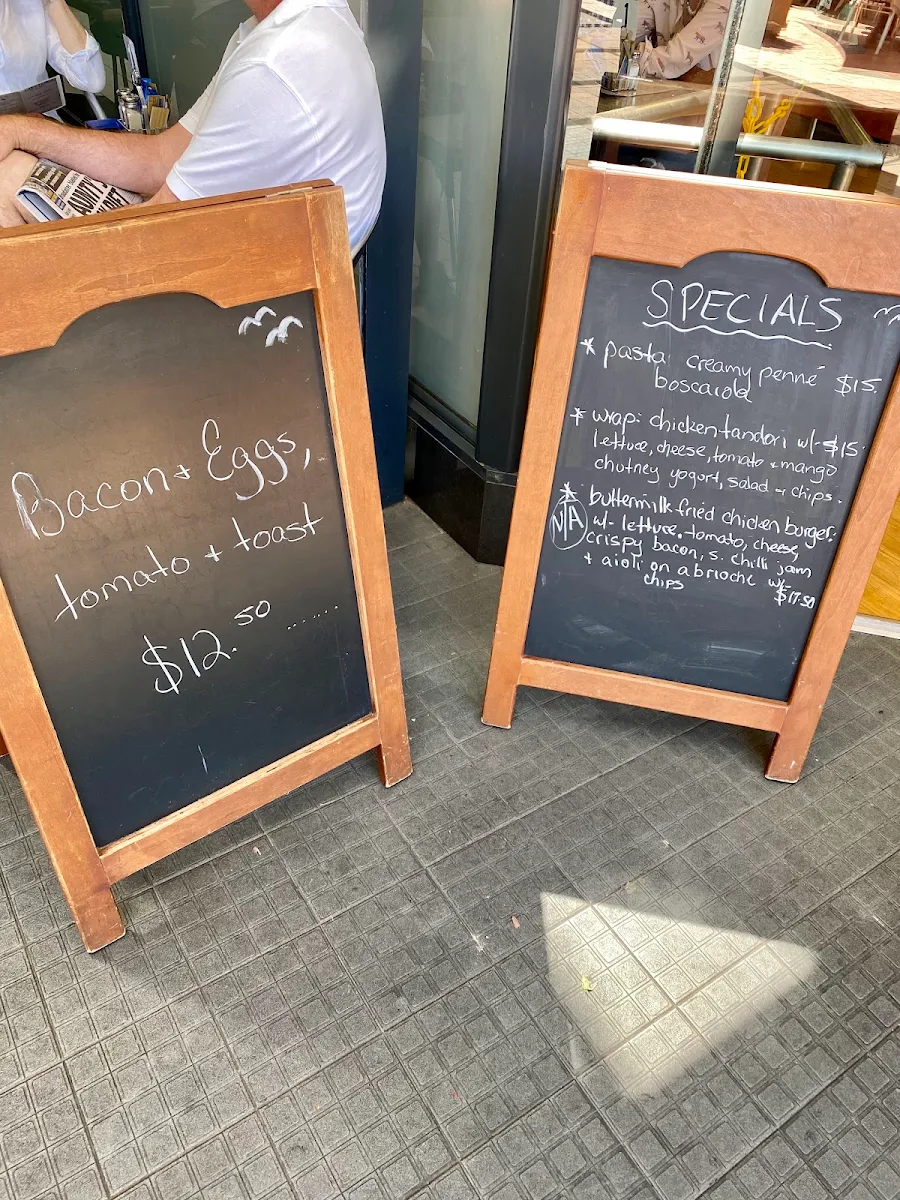 Bacon + Eggs,
tomato + toast
$12.50 .......
SPECIALS
* pasta creamy penné $15.
boscarola
* wrap: chicken tandori w/- $15.
lettuce, cheese, tomato + mango
chutney yogurt, salad + chips.
* buttermilk fried chicken burger.
N/A w/- lettuce, tomato, cheese,
crispy bacon, s. chilli jam
+ aioli on a brioche w/-
chips $17.50